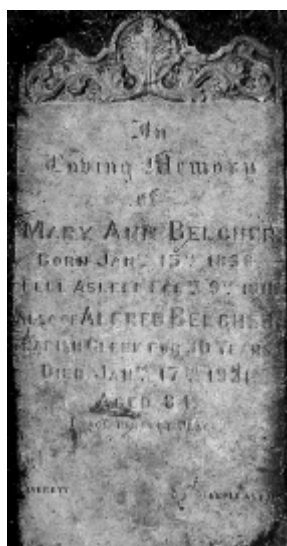 In
Loving Memory
of
Mary Ann Belcher
Born Jany 15th 1836
Fell Asleep Feby 9th
Also of Alfred Belcher
Parish Clerk for 40 Years
Died Jany 17th 1921
Aged 84
Peace Perfect Peace